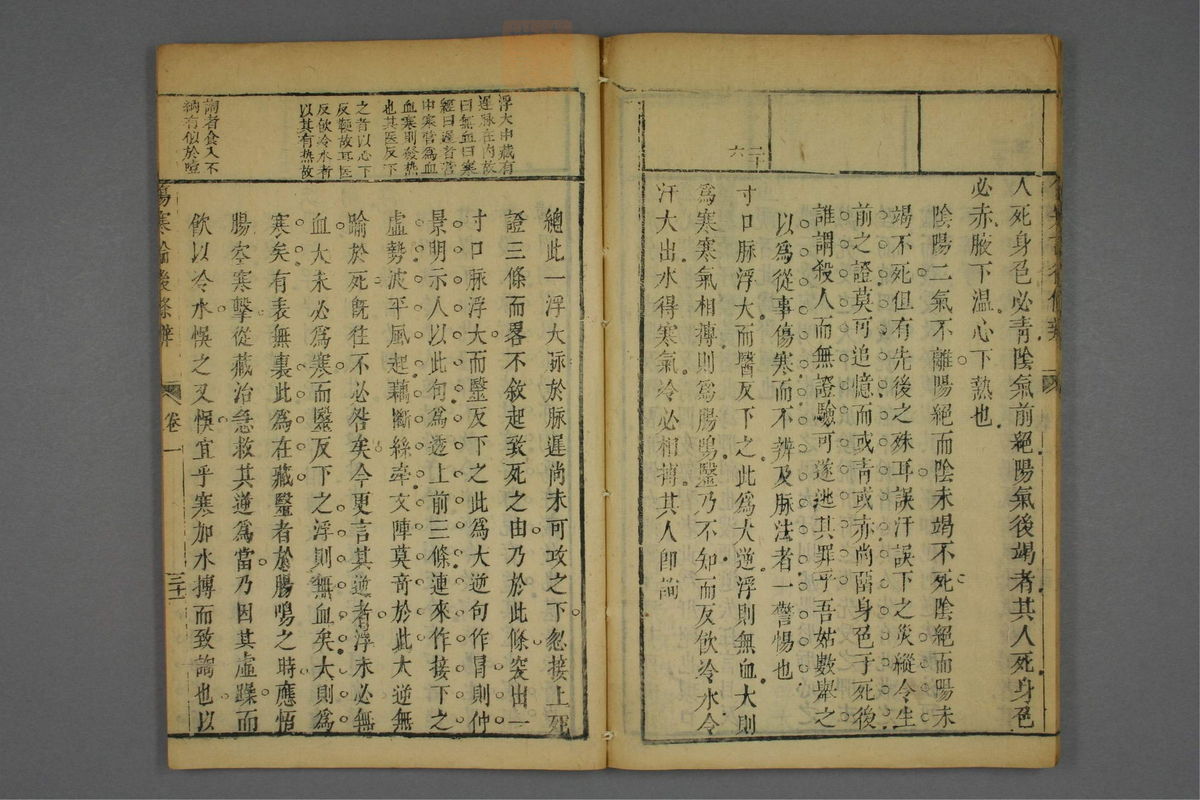 二十
六
人死身色必青陰氣前絕陽氣後竭者其人死身色
必赤腋下溫心下熱也
陰陽二氣不離陽絕而陰未竭不死陰絕而陽未
竭不死但有先後之殊耳誤汗誤下之災縱今生
前之證莫可追憶而或青或赤尚畱身色于死後
誰謂殺人而無證驗可遂逃其罪乎吾姑數舉之
以爲從事傷寒而不辨及脉法者一警惕也
寸口脈浮大而醫反下之此爲大逆浮則無血大則
爲寒寒氣相搏則爲腸鳴醫乃不知而反飲冷水令
汗大出水得寒氣冷必相搏其人卽䭇
浮大中藏有
遲脉在內故
曰無血曰寒
經曰遲者營
中寒營爲血
血寒則發熱
也其医反下
之者以心下
反鞕故耳医
反飲冷水者
以其有热故
䭇者食入不
納有似於噎
總此一浮大脉於脈遲尚未可攻之下忽接上死
證三條而畧不敘起致死之由乃於此條突出一
寸口脈浮大而毉反下之此爲大逆句作冒則仲
景明示人以此句爲透上前三條連來作接下之
虛勢波平風起藕斷絲牽文陣莫奇於此大逆無
踰於死旣往不必咎矣今更言其逆者浮未必無
血大未必爲寒而毉反下之浮則無血矣大則爲
寒矣有表無裏此爲在藏毉者於腸鳴之時應悟
腸空寒擊從藏治急救其逆爲當乃因其虛躁而
飲以冷水悞之又悞宜乎寒加水搏而致䭇也以
傷寒論後條辨
卷一
三十一